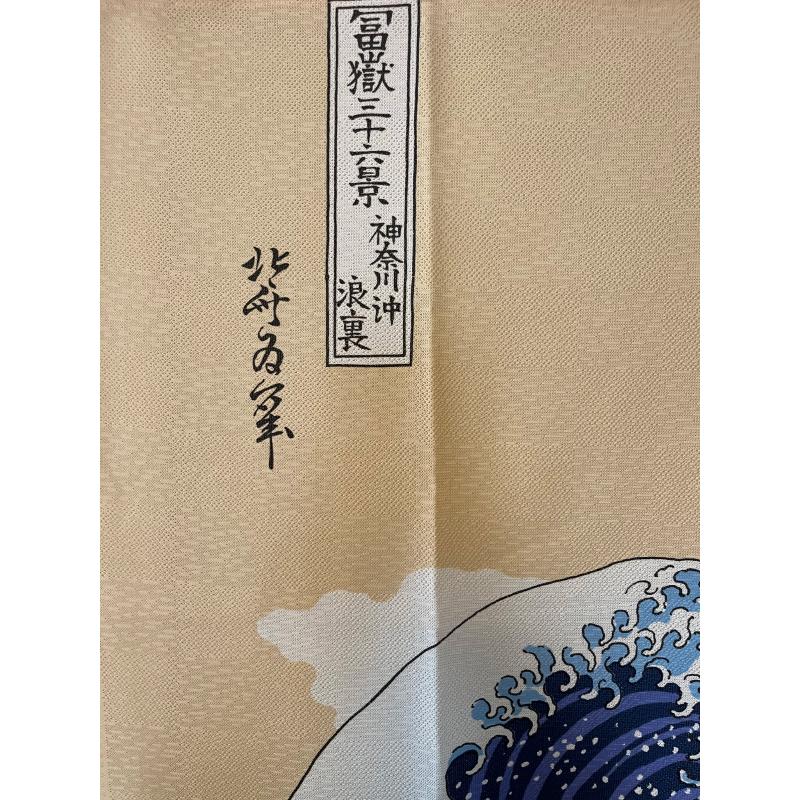 冨嶽三十六景
神奈川沖
浪裏
北斎為筆